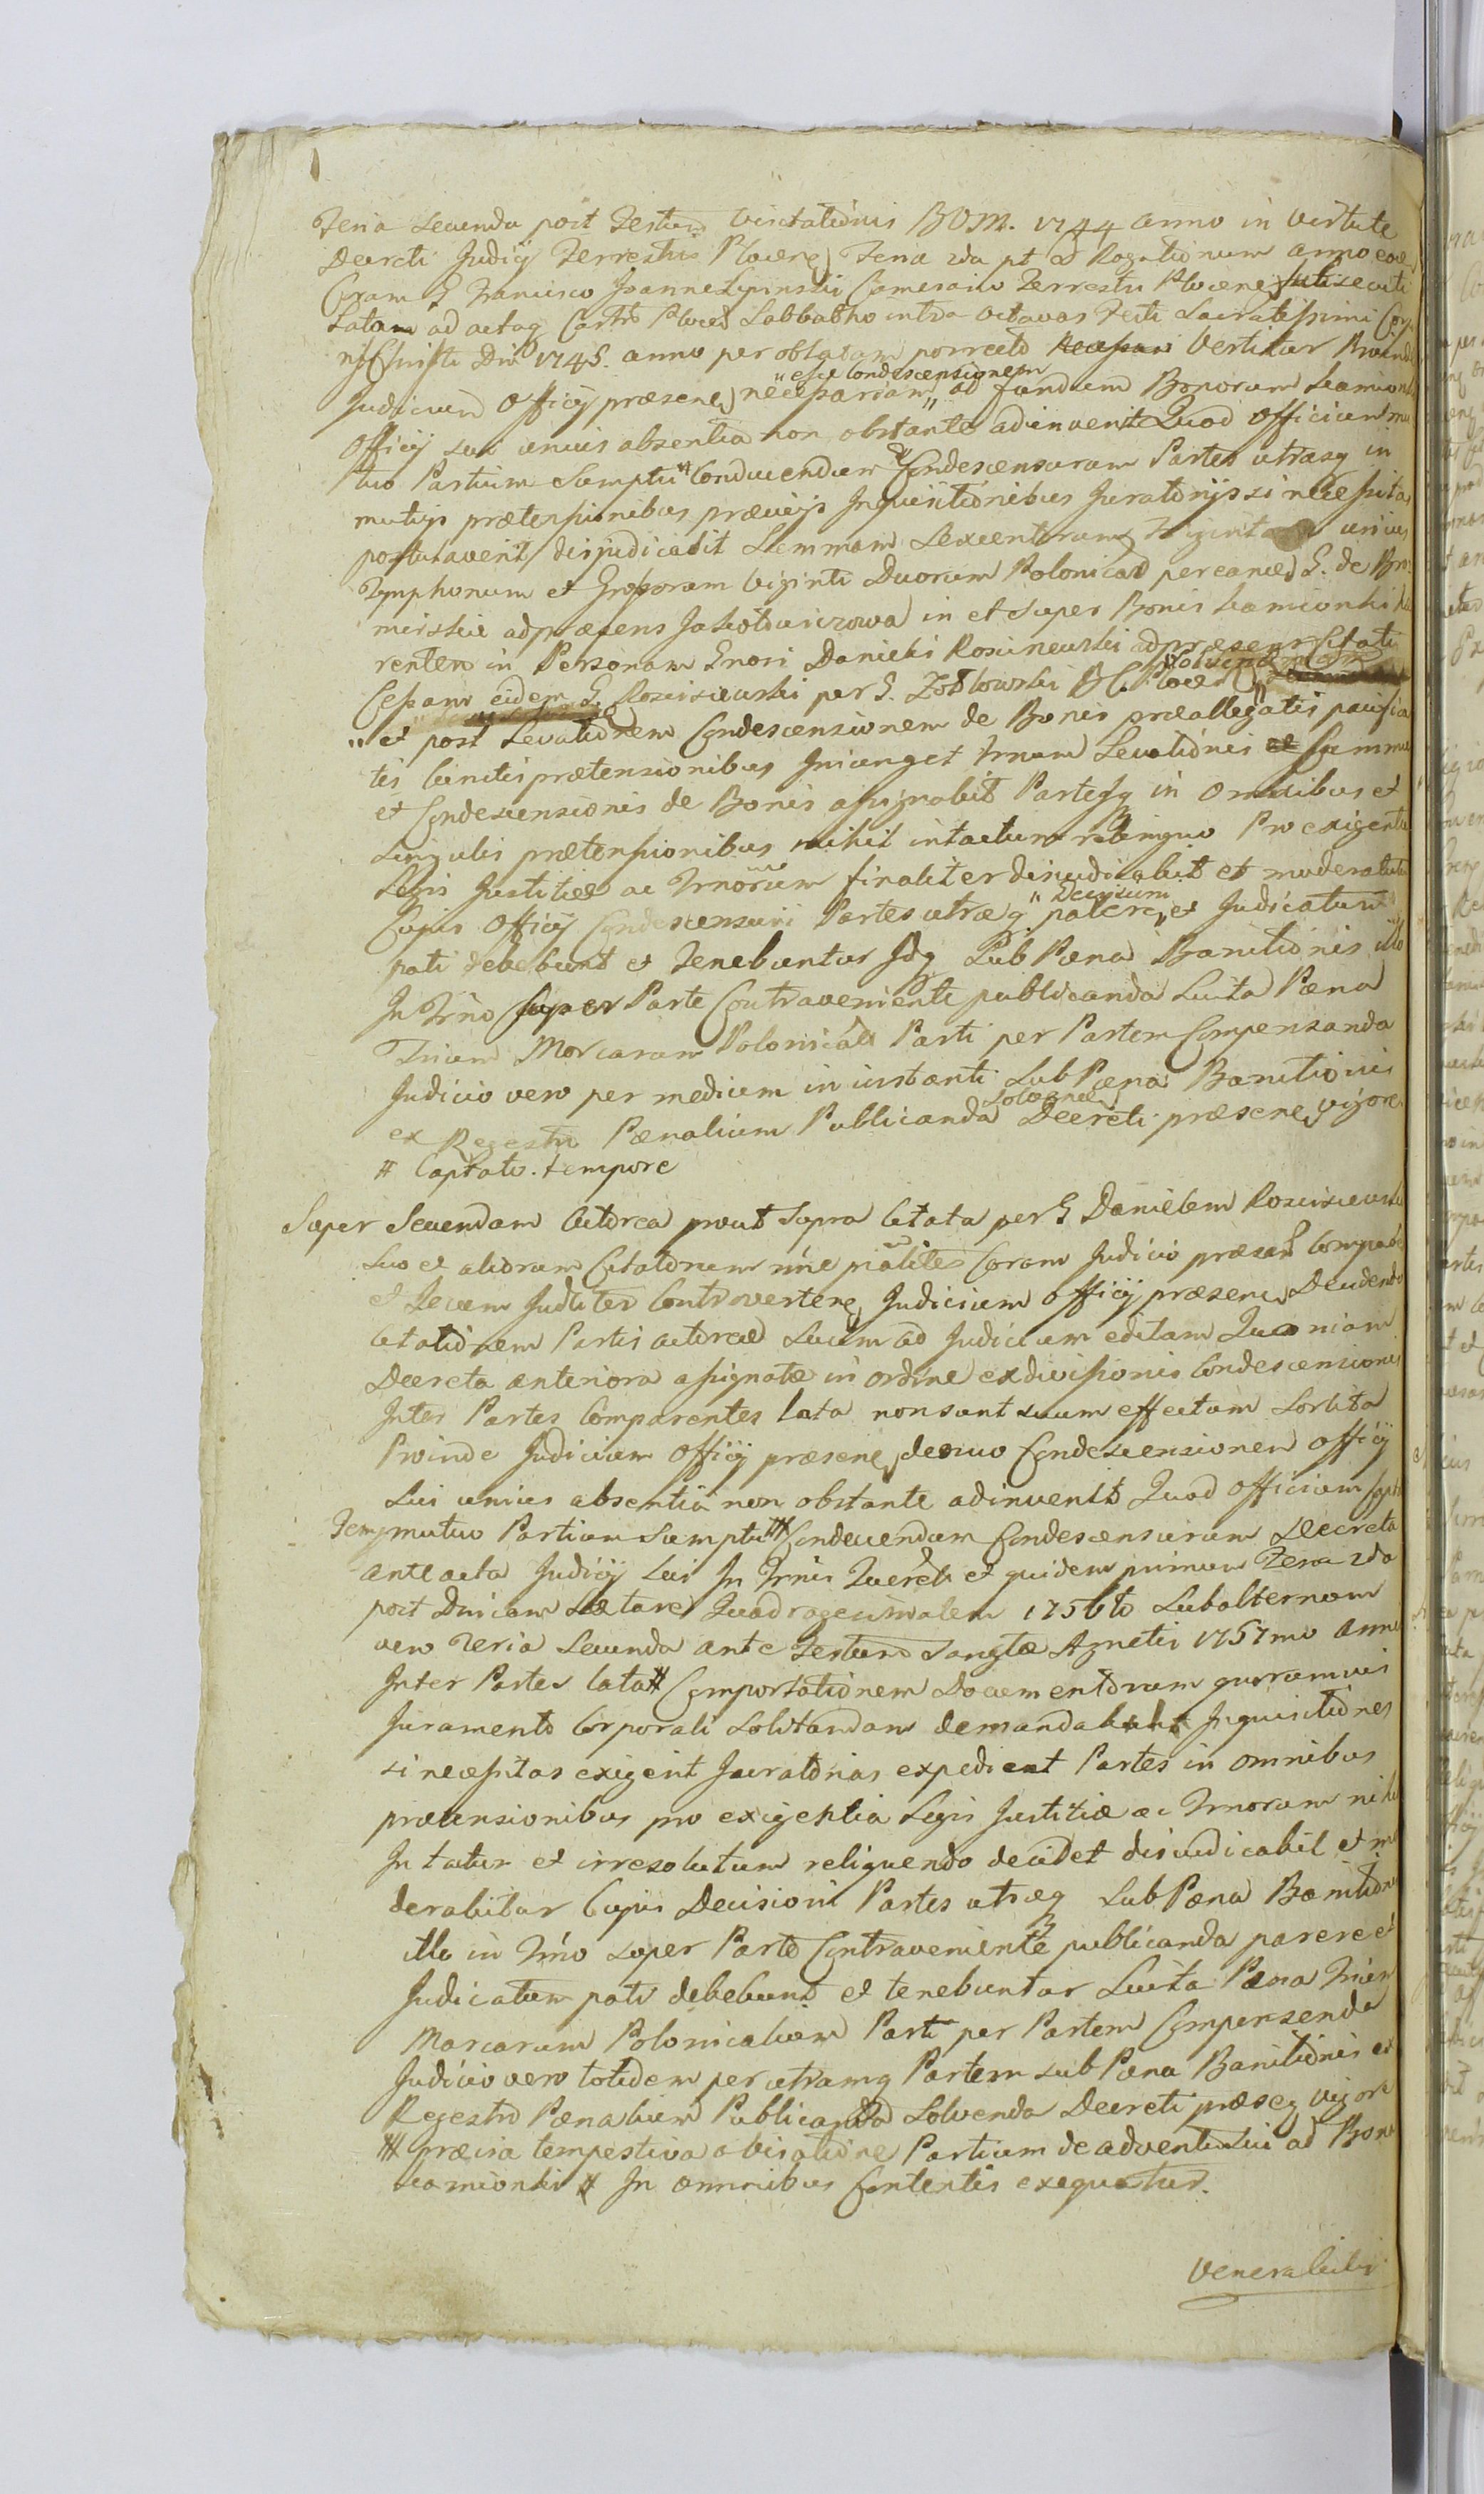 Feria secunda post Festum Visitationis BVM. 1744 anno in Vertute
Decreti Judicij Terrestris Plocen Feria 2da pt Rogationum anno eod
Coram G Francisco Joanne Lipinski Camerario Terrestri Plocen subsecuti
Latam ad actaq Castr Plocen Sabbatho intra octavas Festi Sacratissimi Corp
Christi Dni 1745. anno per oblatam porrecto Vertitur Proinde
Judicium Officij praesens necessariam " esse Condescensionem " ad fundum Bonorum Kamionki
Officij sui unius absentia non obstante adinvenit Quod Officium mu
tuo Partium Sumptu # Conducendum & Condescensurum Partes utrasq in
mutuis praetensionibus praevijs Inquisitionibus Juratorijs si necessitas
postulaverit disjudicabit Summam Sexcentorum Triginta unius
Tymphonum et Grossorum Viginti Duorum Polonical per eandem G. de
ad praesens Jakotowiczowa in et super Bonis Kamionki hae
rentem in Personam Gnosi Danielis Rosciszewski ad praesens Citati
Cessam eidem G. Rosciszewski per G. Zotowski B C Plocen solvend
" et post " Levationem Condescensionem de Bonis praeallegatis pacifica
tis cunctis praetensionibus Injunget Trnum Levationis Summae
et Condescensionis de Bonis assignabit Partesq in Omnibus et
singulis praetensionibus nihil intactum relinquo Pro exigentia
Legis Justitiae ac Trnorum finaliter disjudicabit et moderabitur
Cujus Officij Condescensuri Partes utraeq " Decisioni " parere et Judicatum
pati debebunt et tenebuntur Idq Sub Paena Banitionis illo
In Trno super Parte Contraveniente publicanda Luita Paena
Trium Marcarum Polonical Parti per Partem Compensanda
Judicio vero per medium in instanti Sub Paena Banitionis
ex Regestro Paenalium Publicanda Solvenda Decreti praesens vigore
# Captato tempore
Super Secundam Actorea prout supra Citata per G Danielem Rosciszewski
suo et aliorum Citatorum nne Coram Judicio praesen Comparen
et Secum Judlter Controverten Judicium Officij praesens Decidendo
Citationem Partis actoreae Secum ad Judicium editam Quoniam
Decreta anteriora assignatae in ordine exdivisionis Condescensionis
Inter Partes Comparentes lata non sunt suum effectum Sortita
Proinde Judicium Officij praesens denuo Condescensionem Officij
Sui unius absentia non obstante adinvenit Quod Officium Capto
Temp mutuo Partium Sumptu ## Conducendum Condescensurum Decreta
ante acta Judicij Sui In Trnis et quidem primum Feria 2da
post Dnicam Laetare Quadragesimalem 1756to Subalternum
vero Feria Secunda ante Festum Sanctae Agnetis 1757mo Anno
Inter Partes lata # Comportationem Documentorum quorumvis
Juramento Corporali demandabit Inquisitiones
si necessitas exigerit Juratorias expediet Partes in omnibus
praetensionibus pro exigentia Legis Justitiae ac Trnorum nihil
Intactum et irresolutum relinquendo decidet disjudicabit et mo
derabitur Cujus Decisioni Partes utraeq Sub Paena Banitionis
illo in Trno super Parte Contraveniente publicanda parere et
Judicatum pati debebunt et tenebuntur Luita Paena Trium
Marcarum Polonicalium Parti per Partem Compensenda
Judicio vero totidem per utramq Partem sub Paena Banitionis ex
Regestro Paenalium Publicanda Solvenda Decreti praeseq vigore
## praevia tempestiva avisatione Partium de adventu Sui ad Bona
Kamionki # In omnibus Contentis exequetur.
Venerabilis